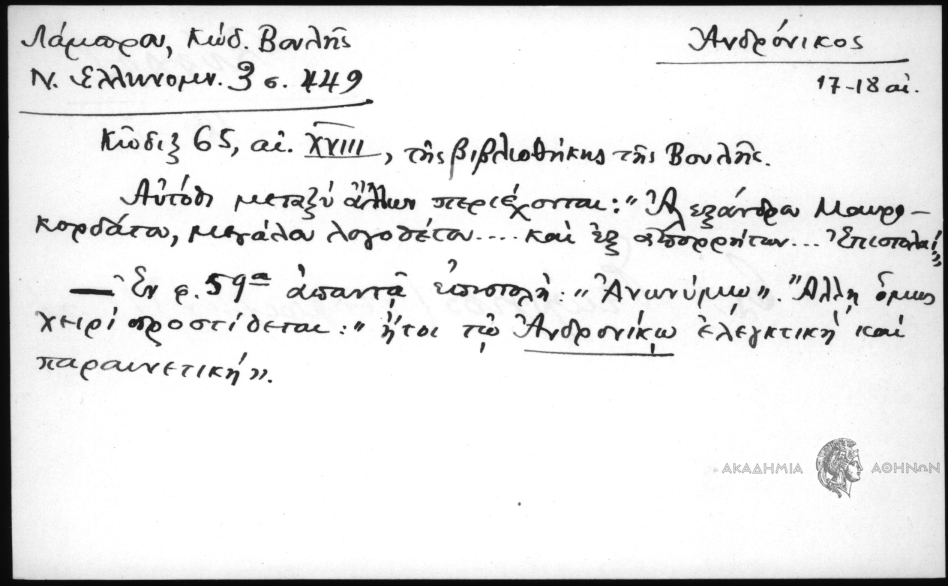 Λάμπρου, Κώδ. Βουλῆς
Ν. Ἑλληνομν. 3 σ. 449
Ἀνδρόνικος
17-18 αἰ.
Κῶδιξ 65, αἰ. XVIII, τῆς βιβλιοθήκης τῆς Βουλῆς.
Αὐτόθι μεταξὺ ἄλλων περιέχονται: "Ἀλεξάνδρου Μαυρο-
κορδάτου, μεγάλου λογοθέτου.... καὶ ἐξ ἀπορρήτων... Ἐπιστολαί"
— Ἐν φ. 59α ἀπαντᾷ ἐπιστολή: "Ἀνωνύμῳ". Ἄλλη ὅμως
χειρὶ προστίθεται: "ἤτοι τῷ Ἀνδρονίκῳ ἐλεγκτικὴ καὶ
παραινετική".
ΑΚΑΔΗΜΙΑ ΑΘΗΝΩΝ